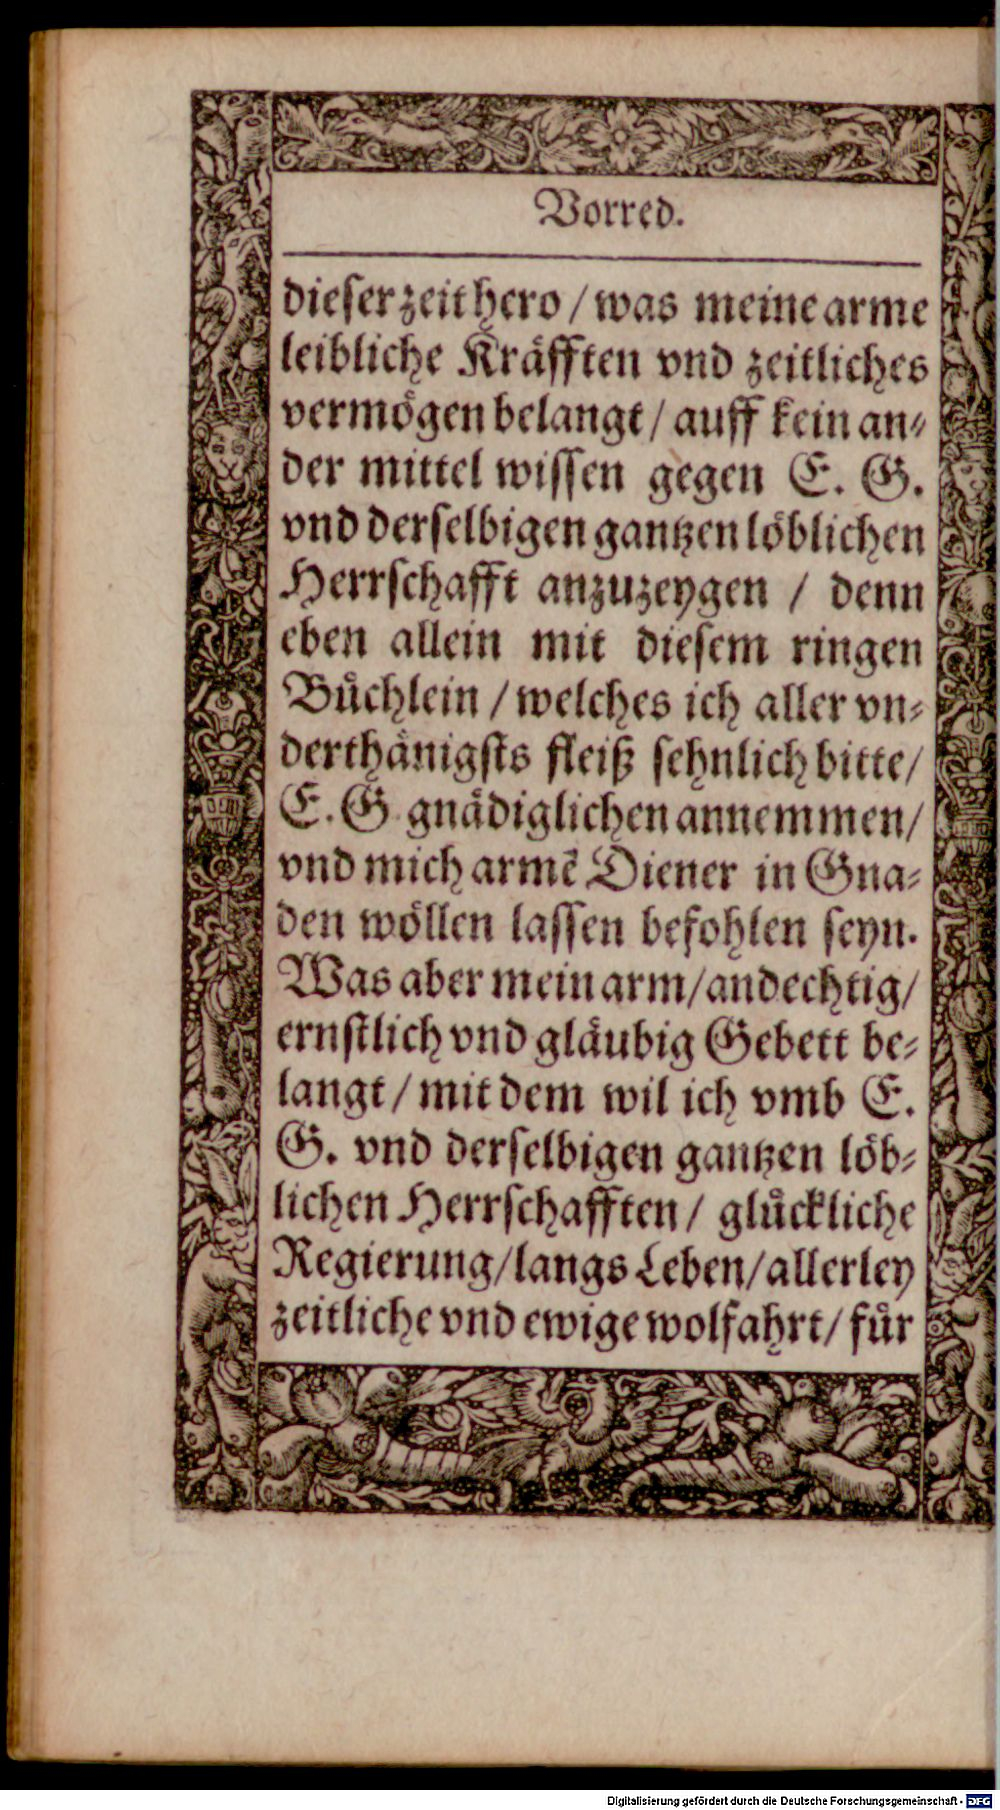 Vorred.
dieser zeit hero / was meine arme
leibliche Kräfften vnd zeitliches
vermögen belangt / auff kein an⸗
der mittel wissen gegen E. G.
vnd derselbigen gantzen löblichen
Herrschafft anzuzeygen / denn
eben allein mit diesem ringen
Bůchlein / welches ich aller vn⸗
derthänigsts fleiß sehnlich bitte /
E. G. gnädiglichen annemmen /
vnd mich armē Diener in Gna⸗
den wöllen lassen befohlen seyn.
Was aber mein arm / andechtig /
ernstlich vnd gläubig Gebett be⸗
langt / mit dem wil ich vmb E.
G. vnd derselbigen gantzen löb⸗
lichen Herrschafften / glůckliche
Regierung / langs Leben / allerley
zeitliche vnd ewige wolfahrt / fůr
Digitalisierung gefördert durch die Deutsche Forschungsgemeinschaft - DFG